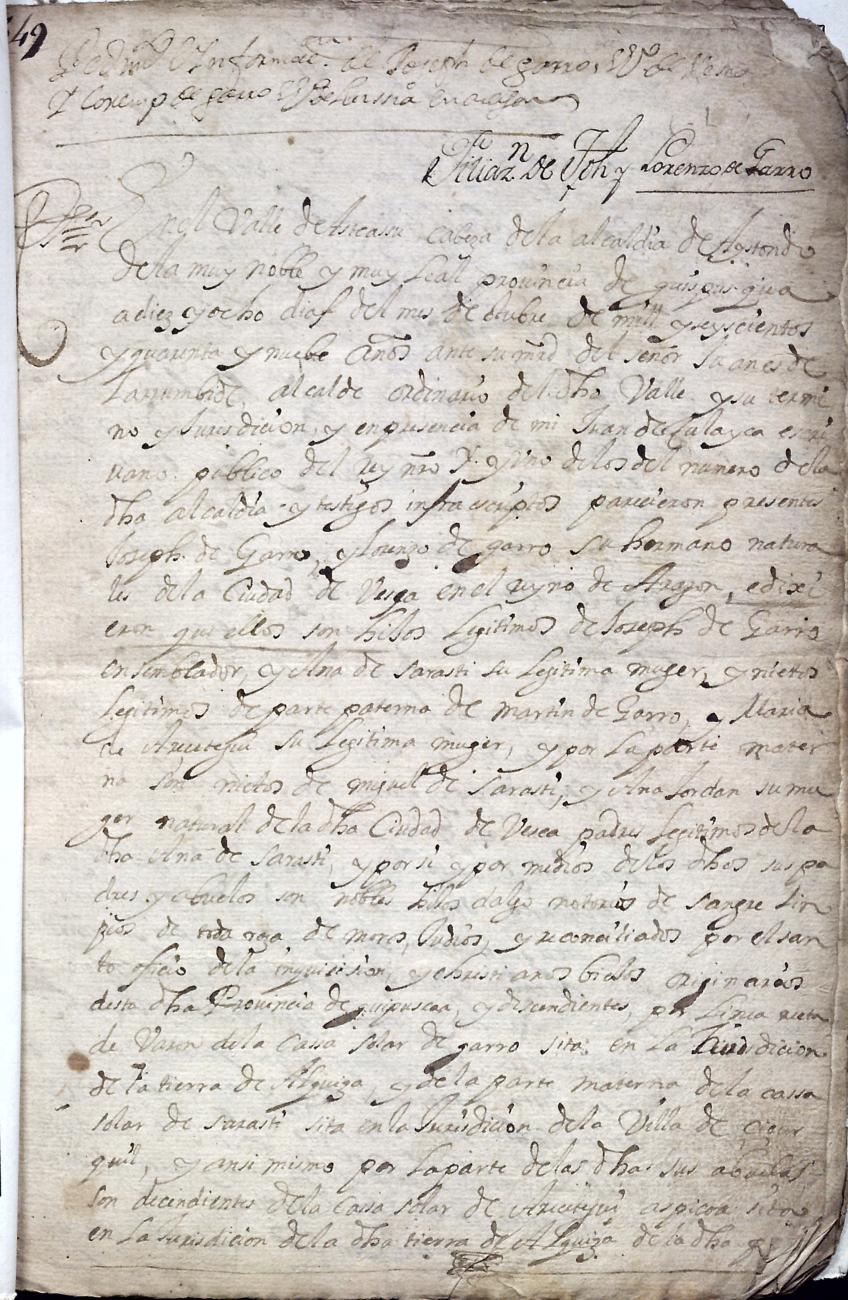 649
Pedimto e Informaon de Joseph de garro, Vo de
Y Lorenço de garro Vo de
Filiazn de Jph y Lorenzo de Garro
Poder
En el Valle de Asteasu cabeza de la alcaldia de Aystondo
de la muy noble y muy Leall provincia de guipusqua
a diez y ocho dias del mes de otubre de mill y seyscientos
y quarenta y nuebe años ante su mrd del señor Juanes de
Larrumbide alcalde ordinario del dho Valle y su termi
no y Jurisdicion, y en presencia de mi Juan de Culayca escri
uano publico del rey nro sr y uno de los del numero de la
dha alcaldia y testigos infraescriptos parecieron presentes
Joseph de Garro, y Lorenzo de garro su hermano natura
les de la Ciudad de Vesca en el reyno de Aragon, e dixi
eron que ellos son hijos Legitimos de Joseph de Garro
ensemblador, y Ana de Sarasti su Legitima muger, y nietos
Legitimos de parte paterna de martin de Garro, y Maria
de Arecetegui su Legitima muger, y por La parte mater
na son nietos de miguel de Sarasti, y Ana Jordan su mu
ger natural de la dha Ciudad de Vesca padres Legitimos de la
dha Ana de Sarasti, y por si y por medios de los dhos sus pa
dres y abuelos son nobles hijos dalgo notorios de sangre Lin
pios de toda raça de moros, Judios, y reconciliados por el san
to oficio de la inquisision, y christianos biejos originarios
desta dha Provincia de guipuscoa, y descendientes, por Linea recta
de Varon de la Cassa solar de garro sita en La Jurisdicion
de la tierra de Alquiza y de la parte materna de la cassa
solar de sarasti sita en la Jurisdicion de la Villa de Cicur
quil, y ansi mismo por La parte de las dhas sus abuelas
son decendientes de la Cassa solar de Arecetegui aspicoa sita
en La Jurisdicion de la dha tierra de Alquiza de la dha